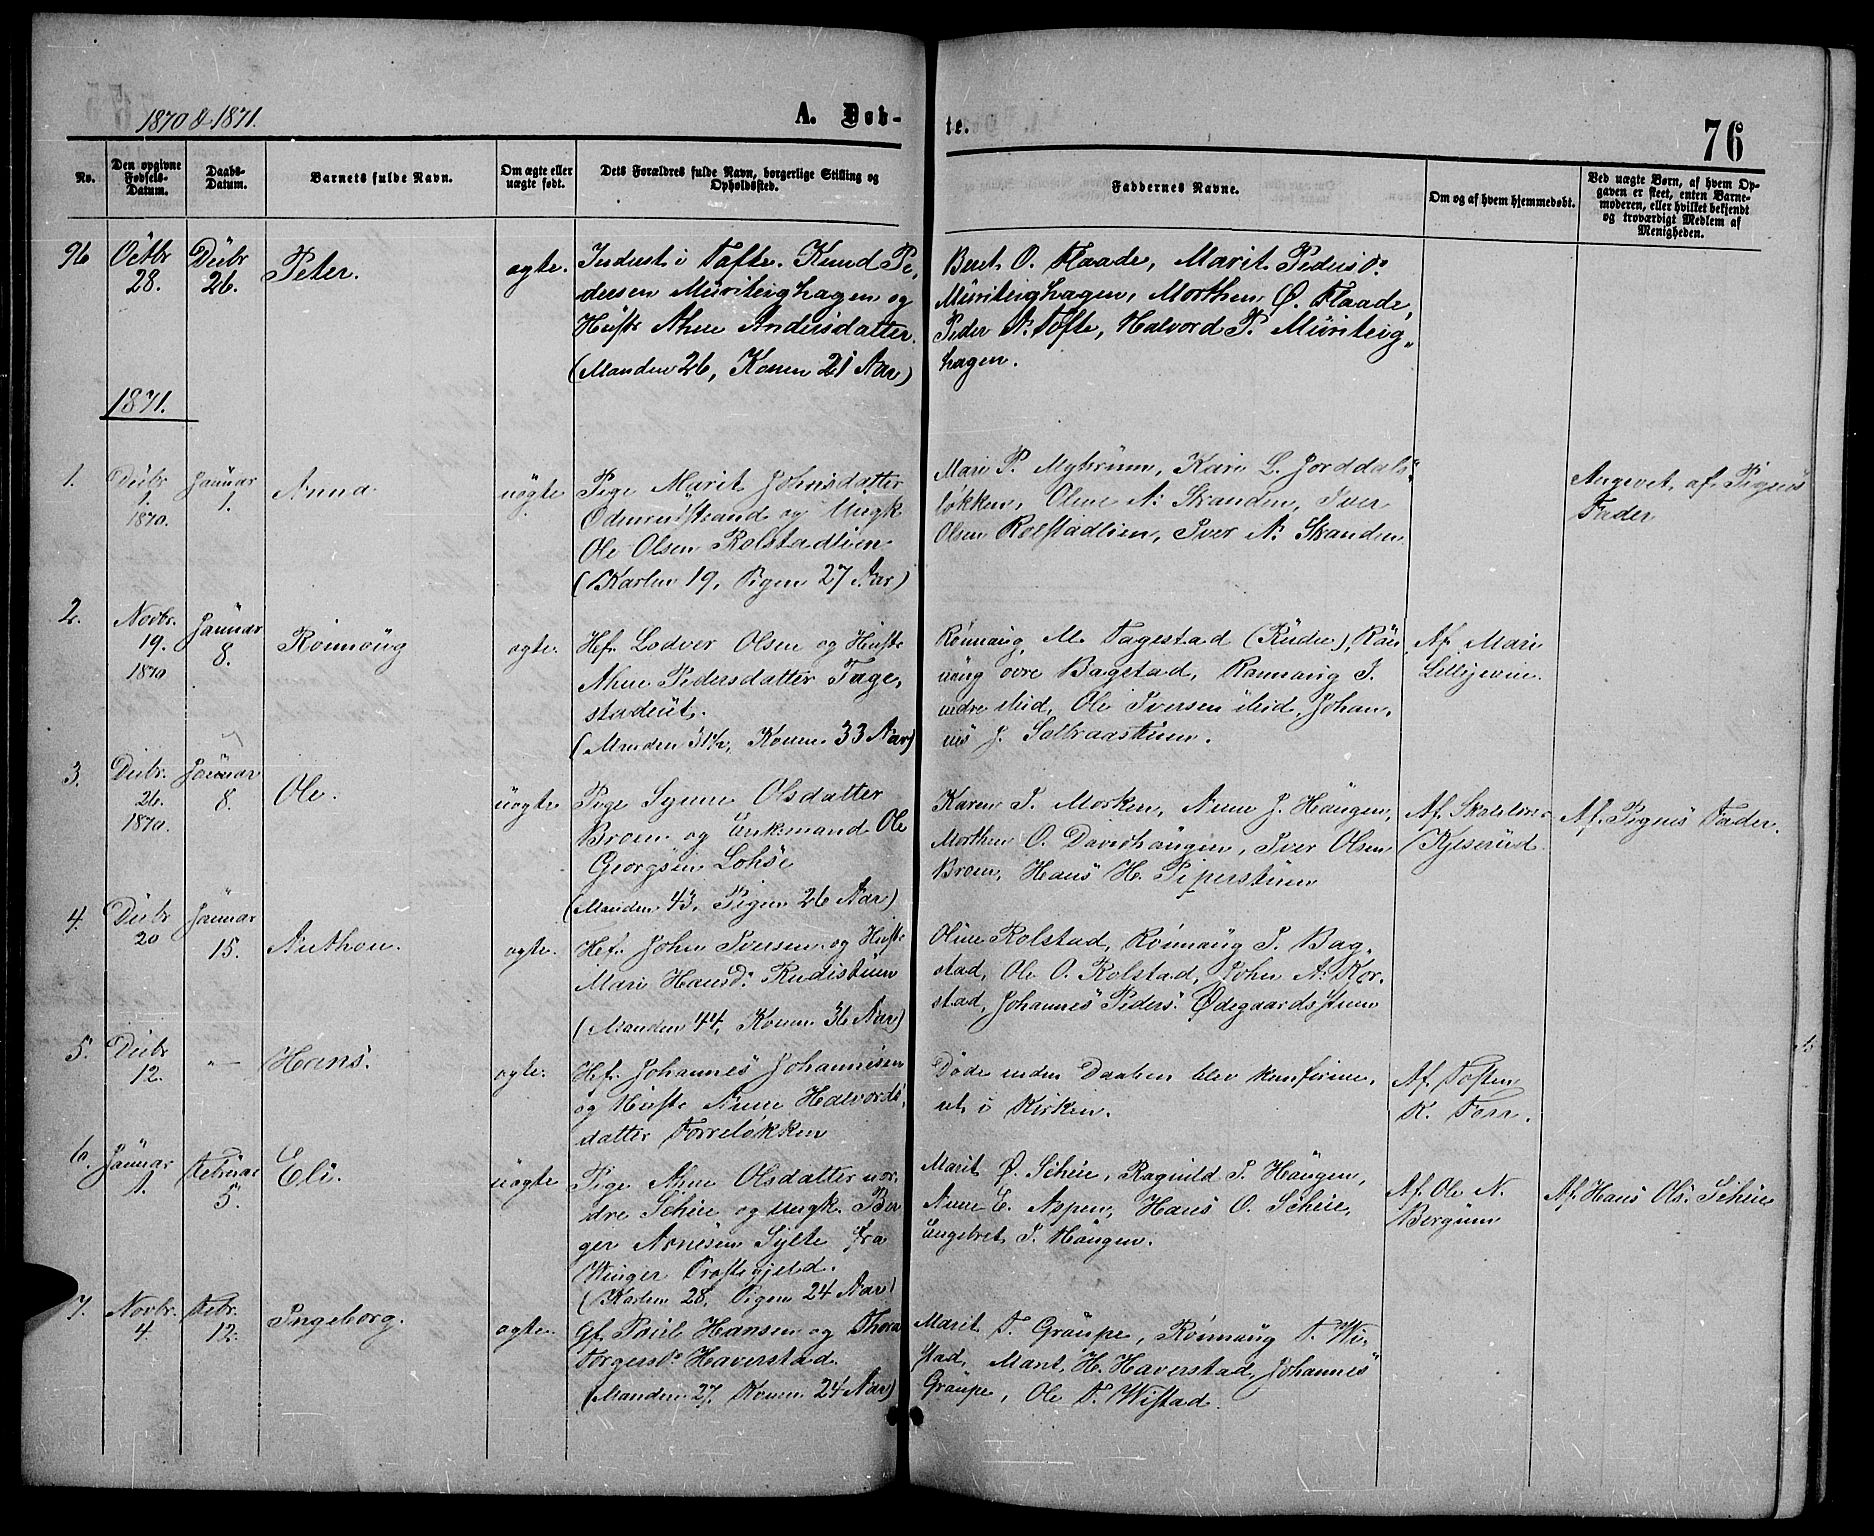 1870 & 1871.
A. Døb-
te.
76
No.
Den opgivne
Fødsels-
Datum.
Daabs-
Datum.
Barnets fulde Navn.
Om ægte eller
uægte født.
Dets Forældres fulde Navn, borgerlige Stilling og
Opholdssted.
Faddernes Navne.
Om og af hvem hjemmedøbt.
Ved uægte Børn, af hvem Op-
gaven er skeet, enten Barne-
moderen, eller hvilket bekjendt
og troværdigt Medlem af
Menigheden.
96
Octbr
28.
Decbr
26.
Peter.
ægte.
Inderst i Tofte. Knud Pe-
dersen Muriteighagen og
Hustr Anne Andersdatter.
(Manden 26, Konen 21 Aar)
Beret O. Flaade, Marit Pedersd.
Muriteighagen, Morthen Ø. Flaade,
Peder A. Tofte, Halvord P. Muriteig-
hagen.
1871.
1.
Decbr
1.
1870.
Januar
1.
Anna
uægte
Pige Marit Johnsdatter
og Ungk
Ole Olsen Rolstadlien
(Karlen 19, Pigen 27 Aar)
Mari P. Myhrum, Kari L. Jorddals-
løkken, Oline A. Stranden, Iver
Olsen Rolstadlien, Iver A. Stranden
Angivet af Pigens
Fader
2.
Novbr.
19.
1870
Januar
8.
Rønnoug
ægte.
Hf. Lodver Olsen og Hustr
Anne Pedersdatter Tage-
stadeiet.
(Manden 31½, Konen 33 Aar)
Rønnaug M. Tagestad (Rudie), Røn-
naug øvre Bagstad, Rønnaug I.
nedre ibid, Ole Iversen ibid, Johan-
nes J. Solbraastuen.
Af Mari
3.
Decbr.
26.
1870.
Januar
8.
Ole.
uægte.
Pige Synne Olsdatter
Broen og Enkemand Ole
Georgsen Lohse
(Manden 43, Pigen 26 Aar)
Karen T. Morken, Anne J. Haugen,
Morthen O. Davidhaugen, Iver Olsen
Broen, Hans H. Piperstuen
Af Skoleler.
Kjeserud
Af Pigens Fader.
4.
Decbr
20
Januar
15.
Anthon.
ægte.
Hf. John Iversen og Hustr
Mari Hansd. Rudistuen
(Manden 44, Konen 36 Aar)
Oline Rolstad, Rønnaug P. Bag-
stad, Ole O. Rolstad, John A. Kor-
stad, Johannes Peders. Ødegaardsstuen
5.
Decbr
12.
"—
Hans.
ægte.
Hf. Johannes Johannesen
og Hustr Anne Halvords-
datter Forreløkken
Døde inden Daaben blev konfirme-
ret i Kirken.
Af Toften
K. Forr.
6.
Januar
1.
Februar
5.
Eli.
uægte.
Pige Anne Olsdatter nor-
dre Scheie og Ungk. Bir-
ger Arnesen Sylte fra
Winger Præstegjeld.
(Karlen 28, Pigen 24 Aar)
Marit Ø. Scheie, Ragnild T. Haugen,
Anne E. Aspen, Hans O. Scheie,
Engebret T. Haugen.
Af Ole N.
Bergum
Af Hans Ols. Scheie
7.
Novbr.
4.
Febr.
12.
Ingeborg.
ægte.
Gf. Paul Hansen og Thora
Torgersd. Haverstad.
(Manden 27, Konen 24 Aar)
Marit T. Graupe, Rønnaug T. Wi-
stad, Marit H. Haverstad, Johannes
Graupe, Ole T. Wistad.